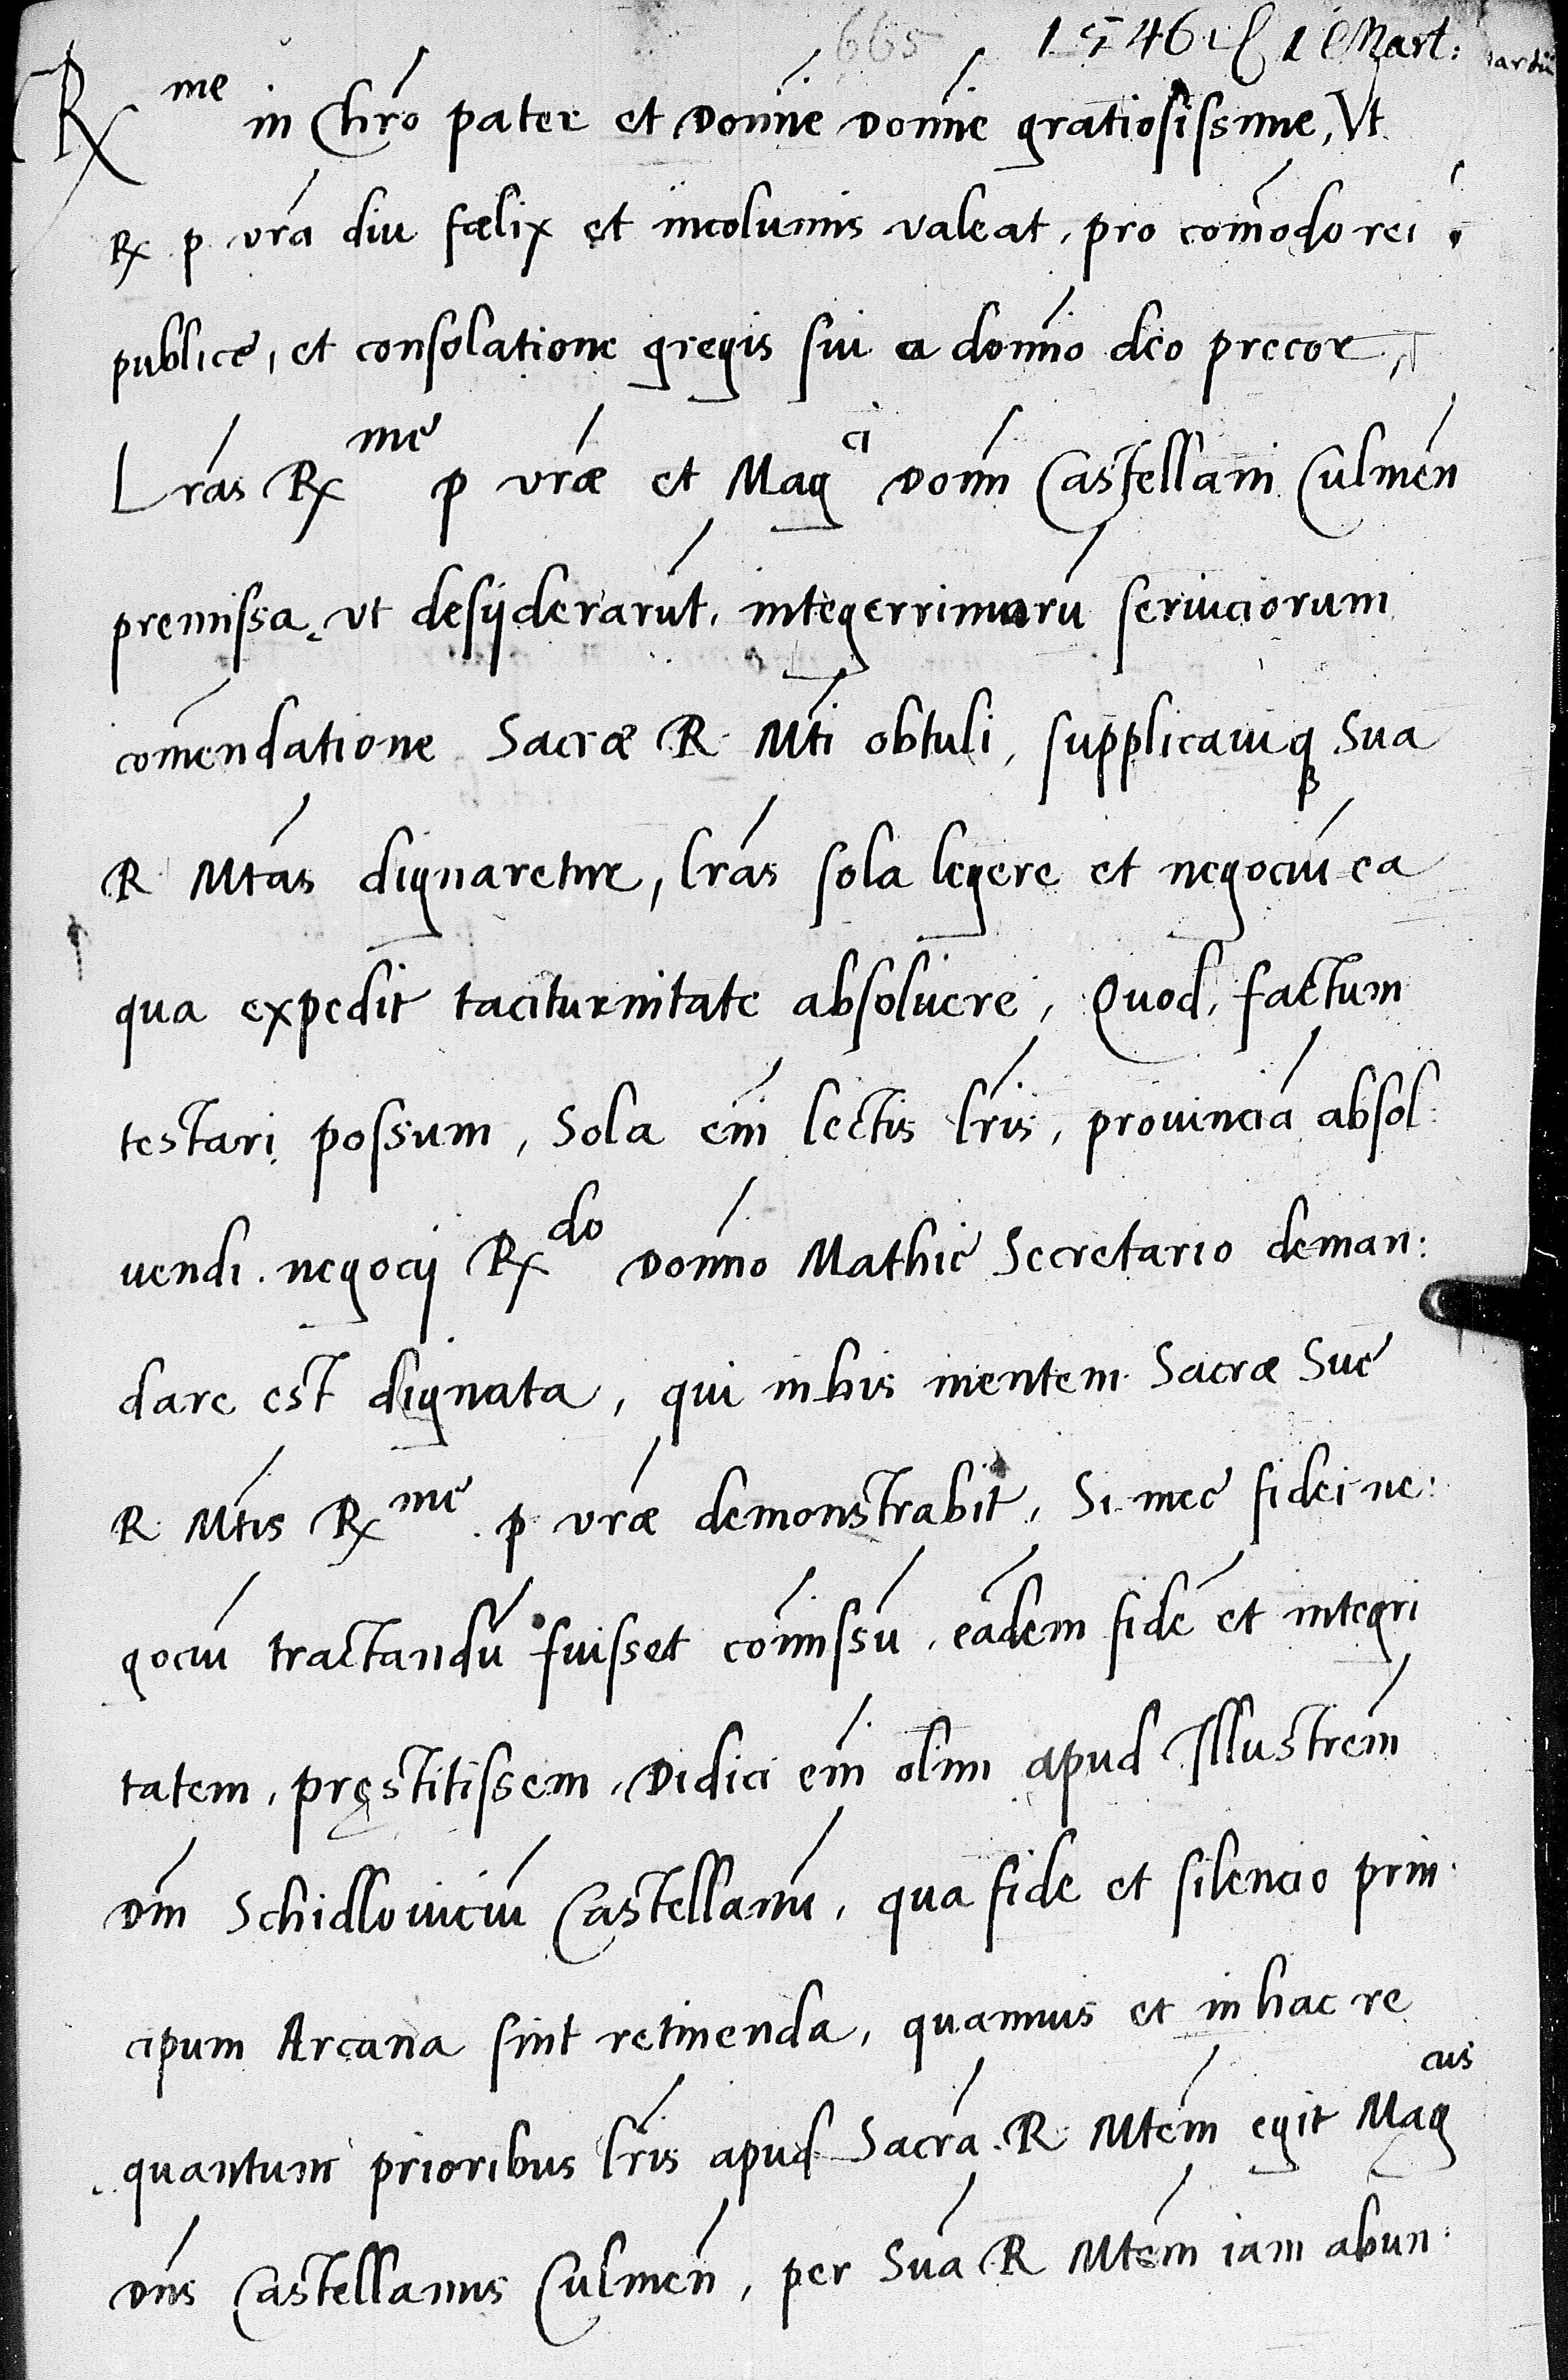 665 1546 1 Mart:
Rx me in Chro pater et Domine Domine gratiosissime, Vt
Rx p vra diu fœlix et incolumis valeat, pro comodo rei
publicę, et consolatione gregis sui a domino deo precor,
Lras Rx mę p vræ et Mag ci Domini Castellani Culmen
premissa, vt desyderarut, integerrimaru seruiciorum
comendatione Sacræ R Mti obtuli, supplicauiq Sua
R Mtas dignaretur, lras sola legere et negociu ea
qua expedit taciturnitate absoluere, Quod, factum
testari possum, Sola em lectis lris, prouincia absol:
uendi negocij Rx do Domino Mathię Secretario deman:
dare est dignata, qui in his mentem Sacræ Suę
R Mtis Rx mę p vræ demonstrabit, Si meę fidei ne:
gociu tractandu fuisset comissu, eadem fide et integri
tatem, pręstitissem, Didici em olim apud Illustrem
Dm Schidllouiciu Castellanu, qua fide et silencio prin:
cipum Arcana sint retinenda, quamuis et in hac re
quantum prioribus lris apud Sacra R Mtem egit Mag cus
Dns Castellanus Culmen, per Sua R Mtem iam abun: